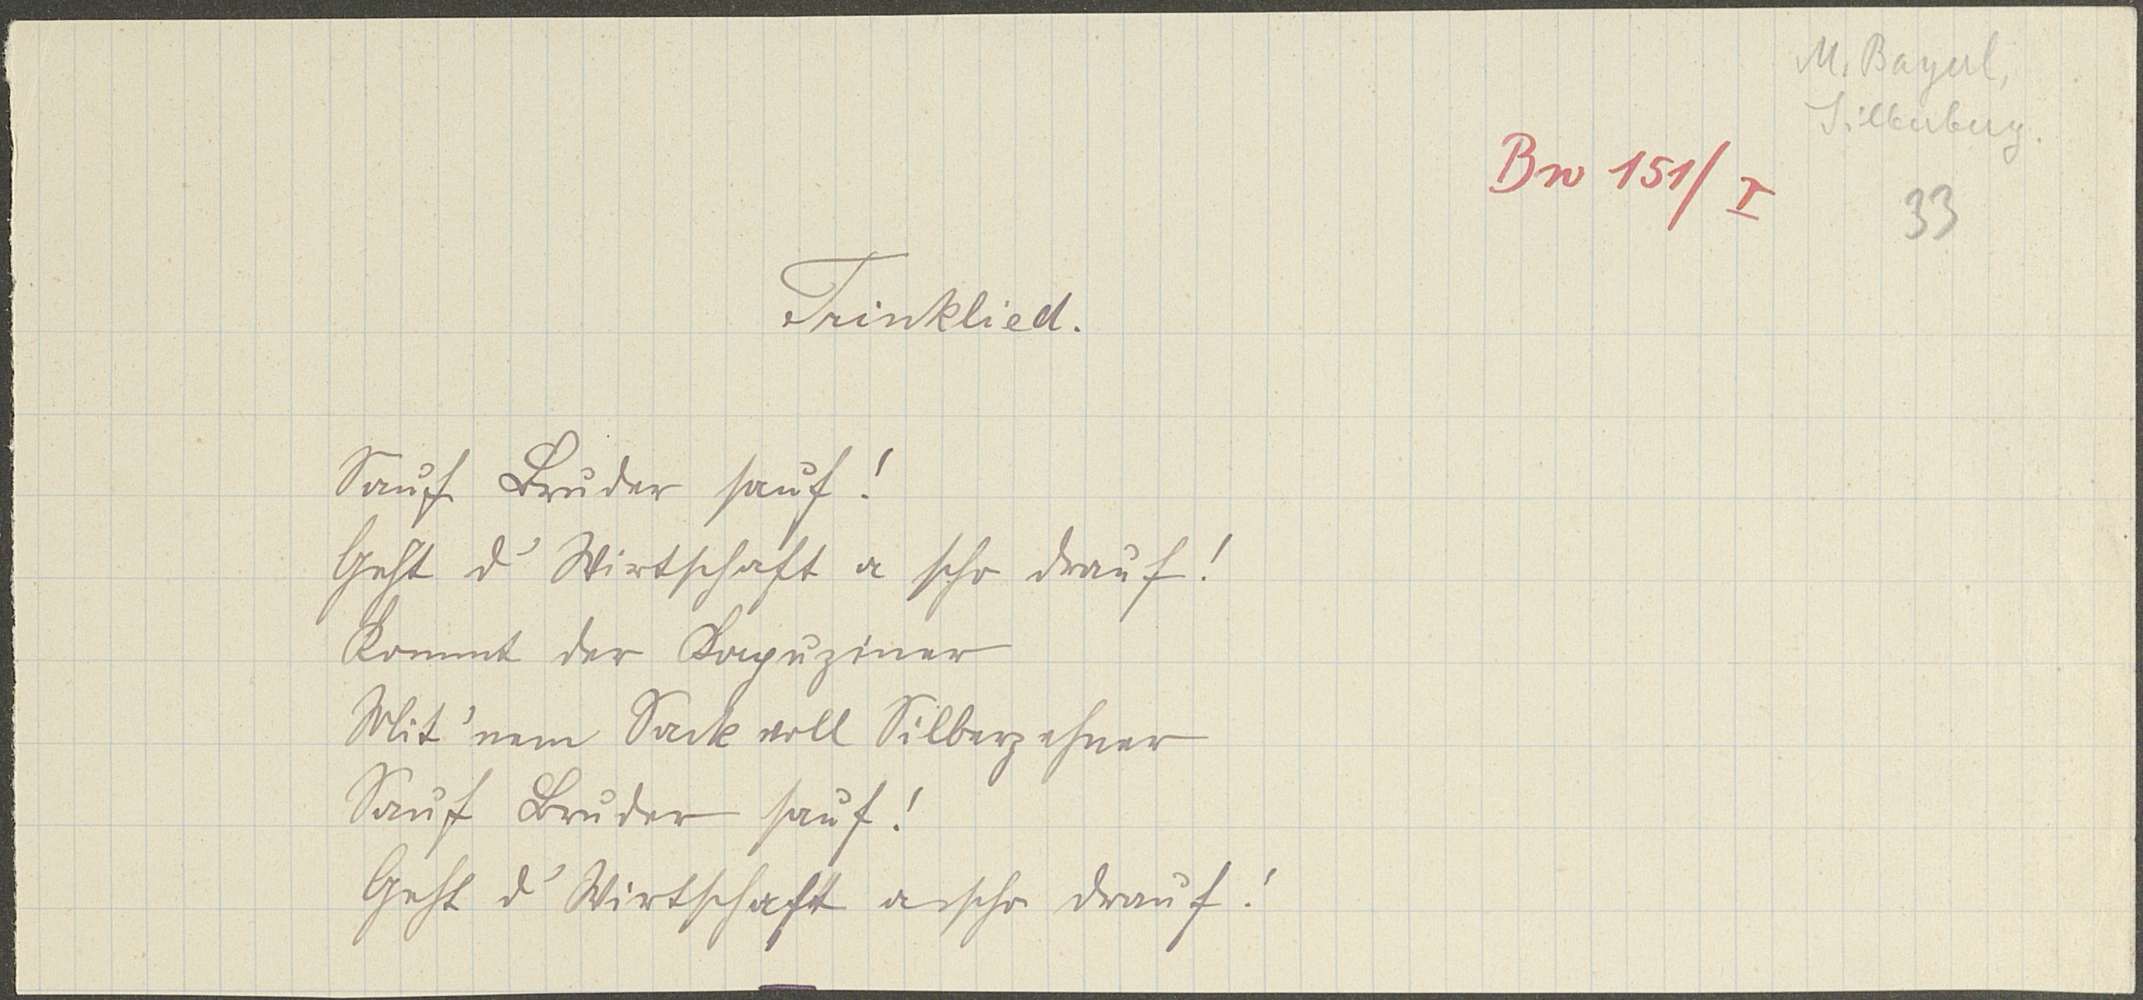 M. Bayerl,
Silberberg.
Bw 151/I
33
Trinklied.
Sauf Bruder sauf!
Geht d' Wirtschaft a scho drauf!
Kommt der Kapuziner
Mit 'nem Sack voll Silberzehner
Sauf Bruder sauf!
Geht d' Wirtschaft a scho drauf!